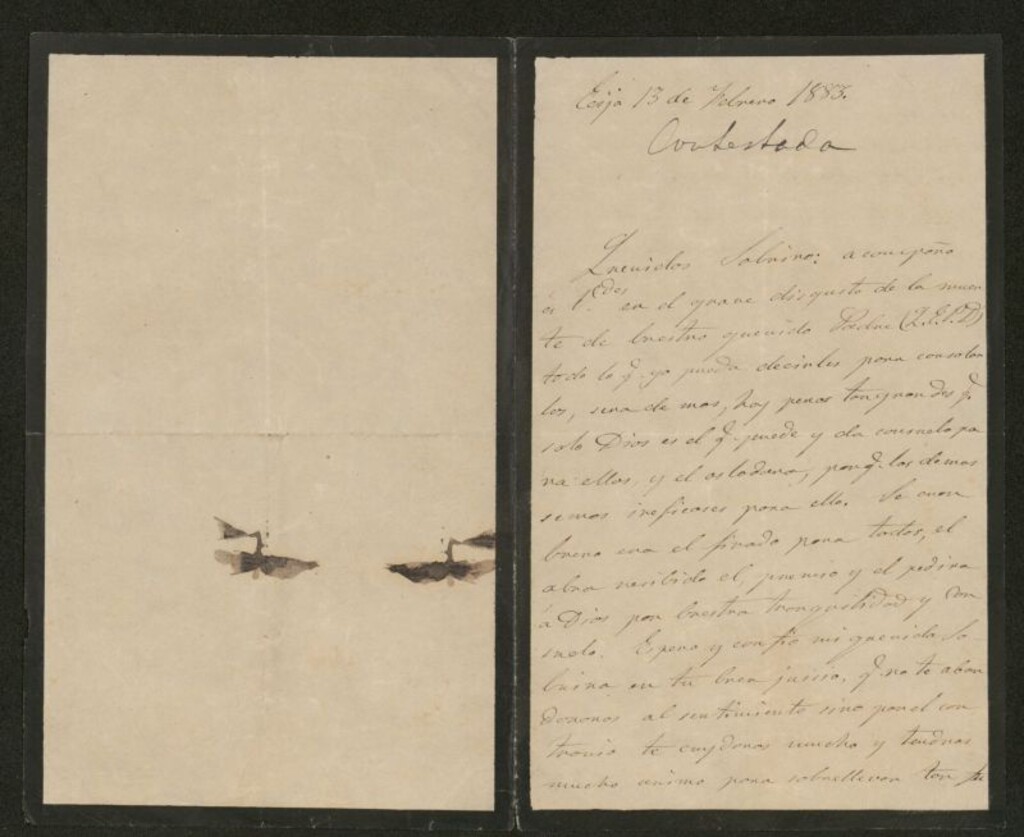 Ecija 13 de Febrero 1883.
Contestada
Queridos Sobrinos: acompaño
a Vdes en el grave disgusto de la muer
te de buestro querido Padre (Q.E.P.D)
todo lo q. yo pueda decirles para consolar
los, seria de mas, hay penas tan grandes q.
solo Dios es el q. puede y da consuelo pa
ra ellas, y el os lo dara, porq. los demas
semos ineficases para ello. Se cuan
bueno era el finado para todos, el
abra recibido el premio y el pedira
á Dios por buestra tranquilidad y con
suelo. Espero y confio mi querida So
brina en tu buen juicio, q. no te aban
donaras al sentimiento sino por el con
trario te cuydaras mucho y tendras
mucho animo para sobrellevar tan